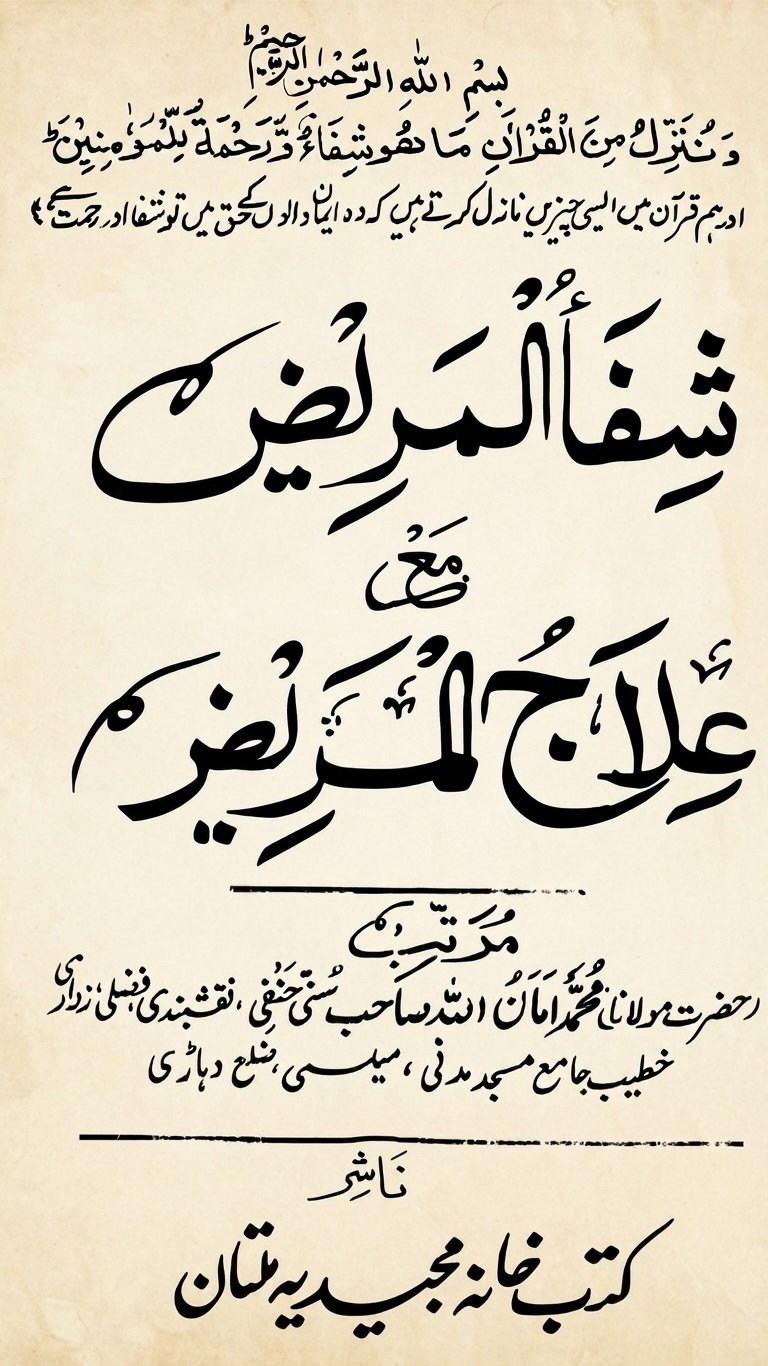 بِسْمِ اللهِ الرَّحْمٰنِ الرَّحِيْمِ ط
وَنُنَزِّلُ مِنَ الْقُرْاٰنِ مَا هُوَ شِفَاءٌ وَّرَحْمَةٌ لِّلْمُؤْمِنِيْنَ ط
اور ہم قرآن میں ایسی چیزیں نازل کرتے ہیں کہ وہ ایمان والوں کے حق میں تو شفا اور رحمت ہے
شِفَأُ الْمَرِيْض
مَعْ
عِلَاجُ الْمَرِيْض
مُرَتِّب
حضرت مولانا مُحَمَّد اَمَانُ اللّٰہ صاحب سُنّی حَنَفِی ، نقشبندی، فضلی،
خطیب جامع مسجد مدنی ، میلسی ، ضلع وہاڑی
نَاشِر
کتب خانہ مجیدیہ ملتان